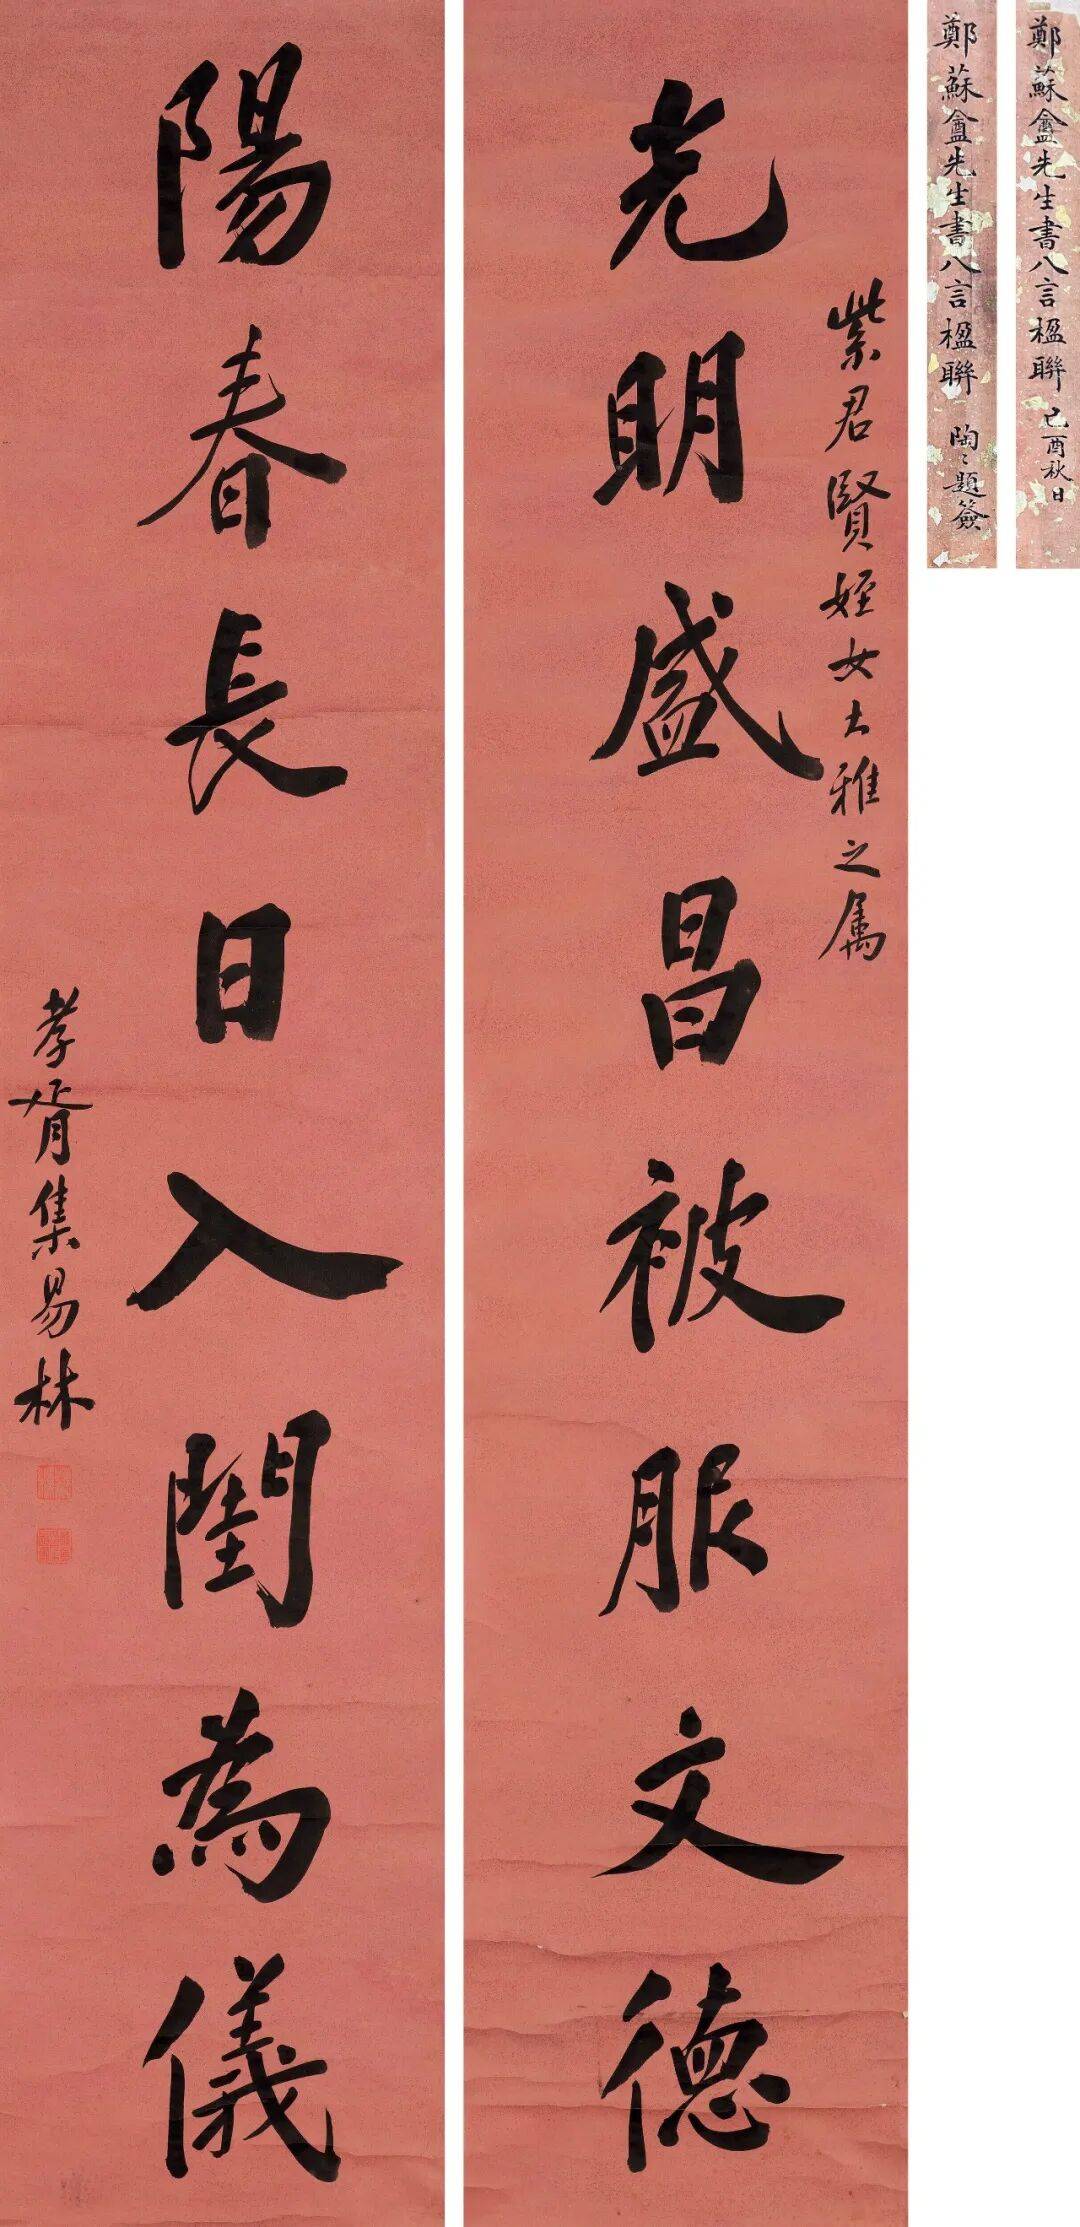 鄭蘇盦先生書八言楹聯 己酉秋日
鄭蘇盦先生書八言楹聯 陶〻題簽
紫君賢姪女士雅之屬
光明盛昌被服文德
陽春長日入閨為儀
孝胥集易林